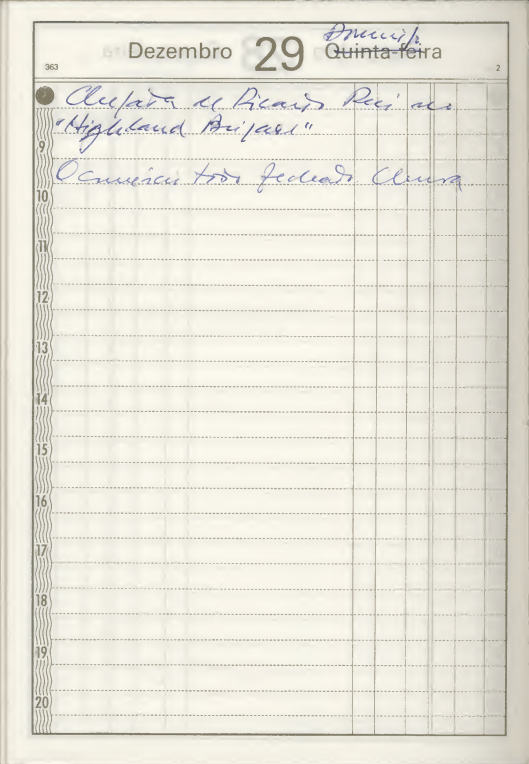 Domingo
Dezembro 29 Quinta-feira
363
2
Chegada de Ricardo Reis no
"Highland Brigade"
9
O comércio todo fechado Chuva
10
11
12
13
14
15
16
17
18
19
20